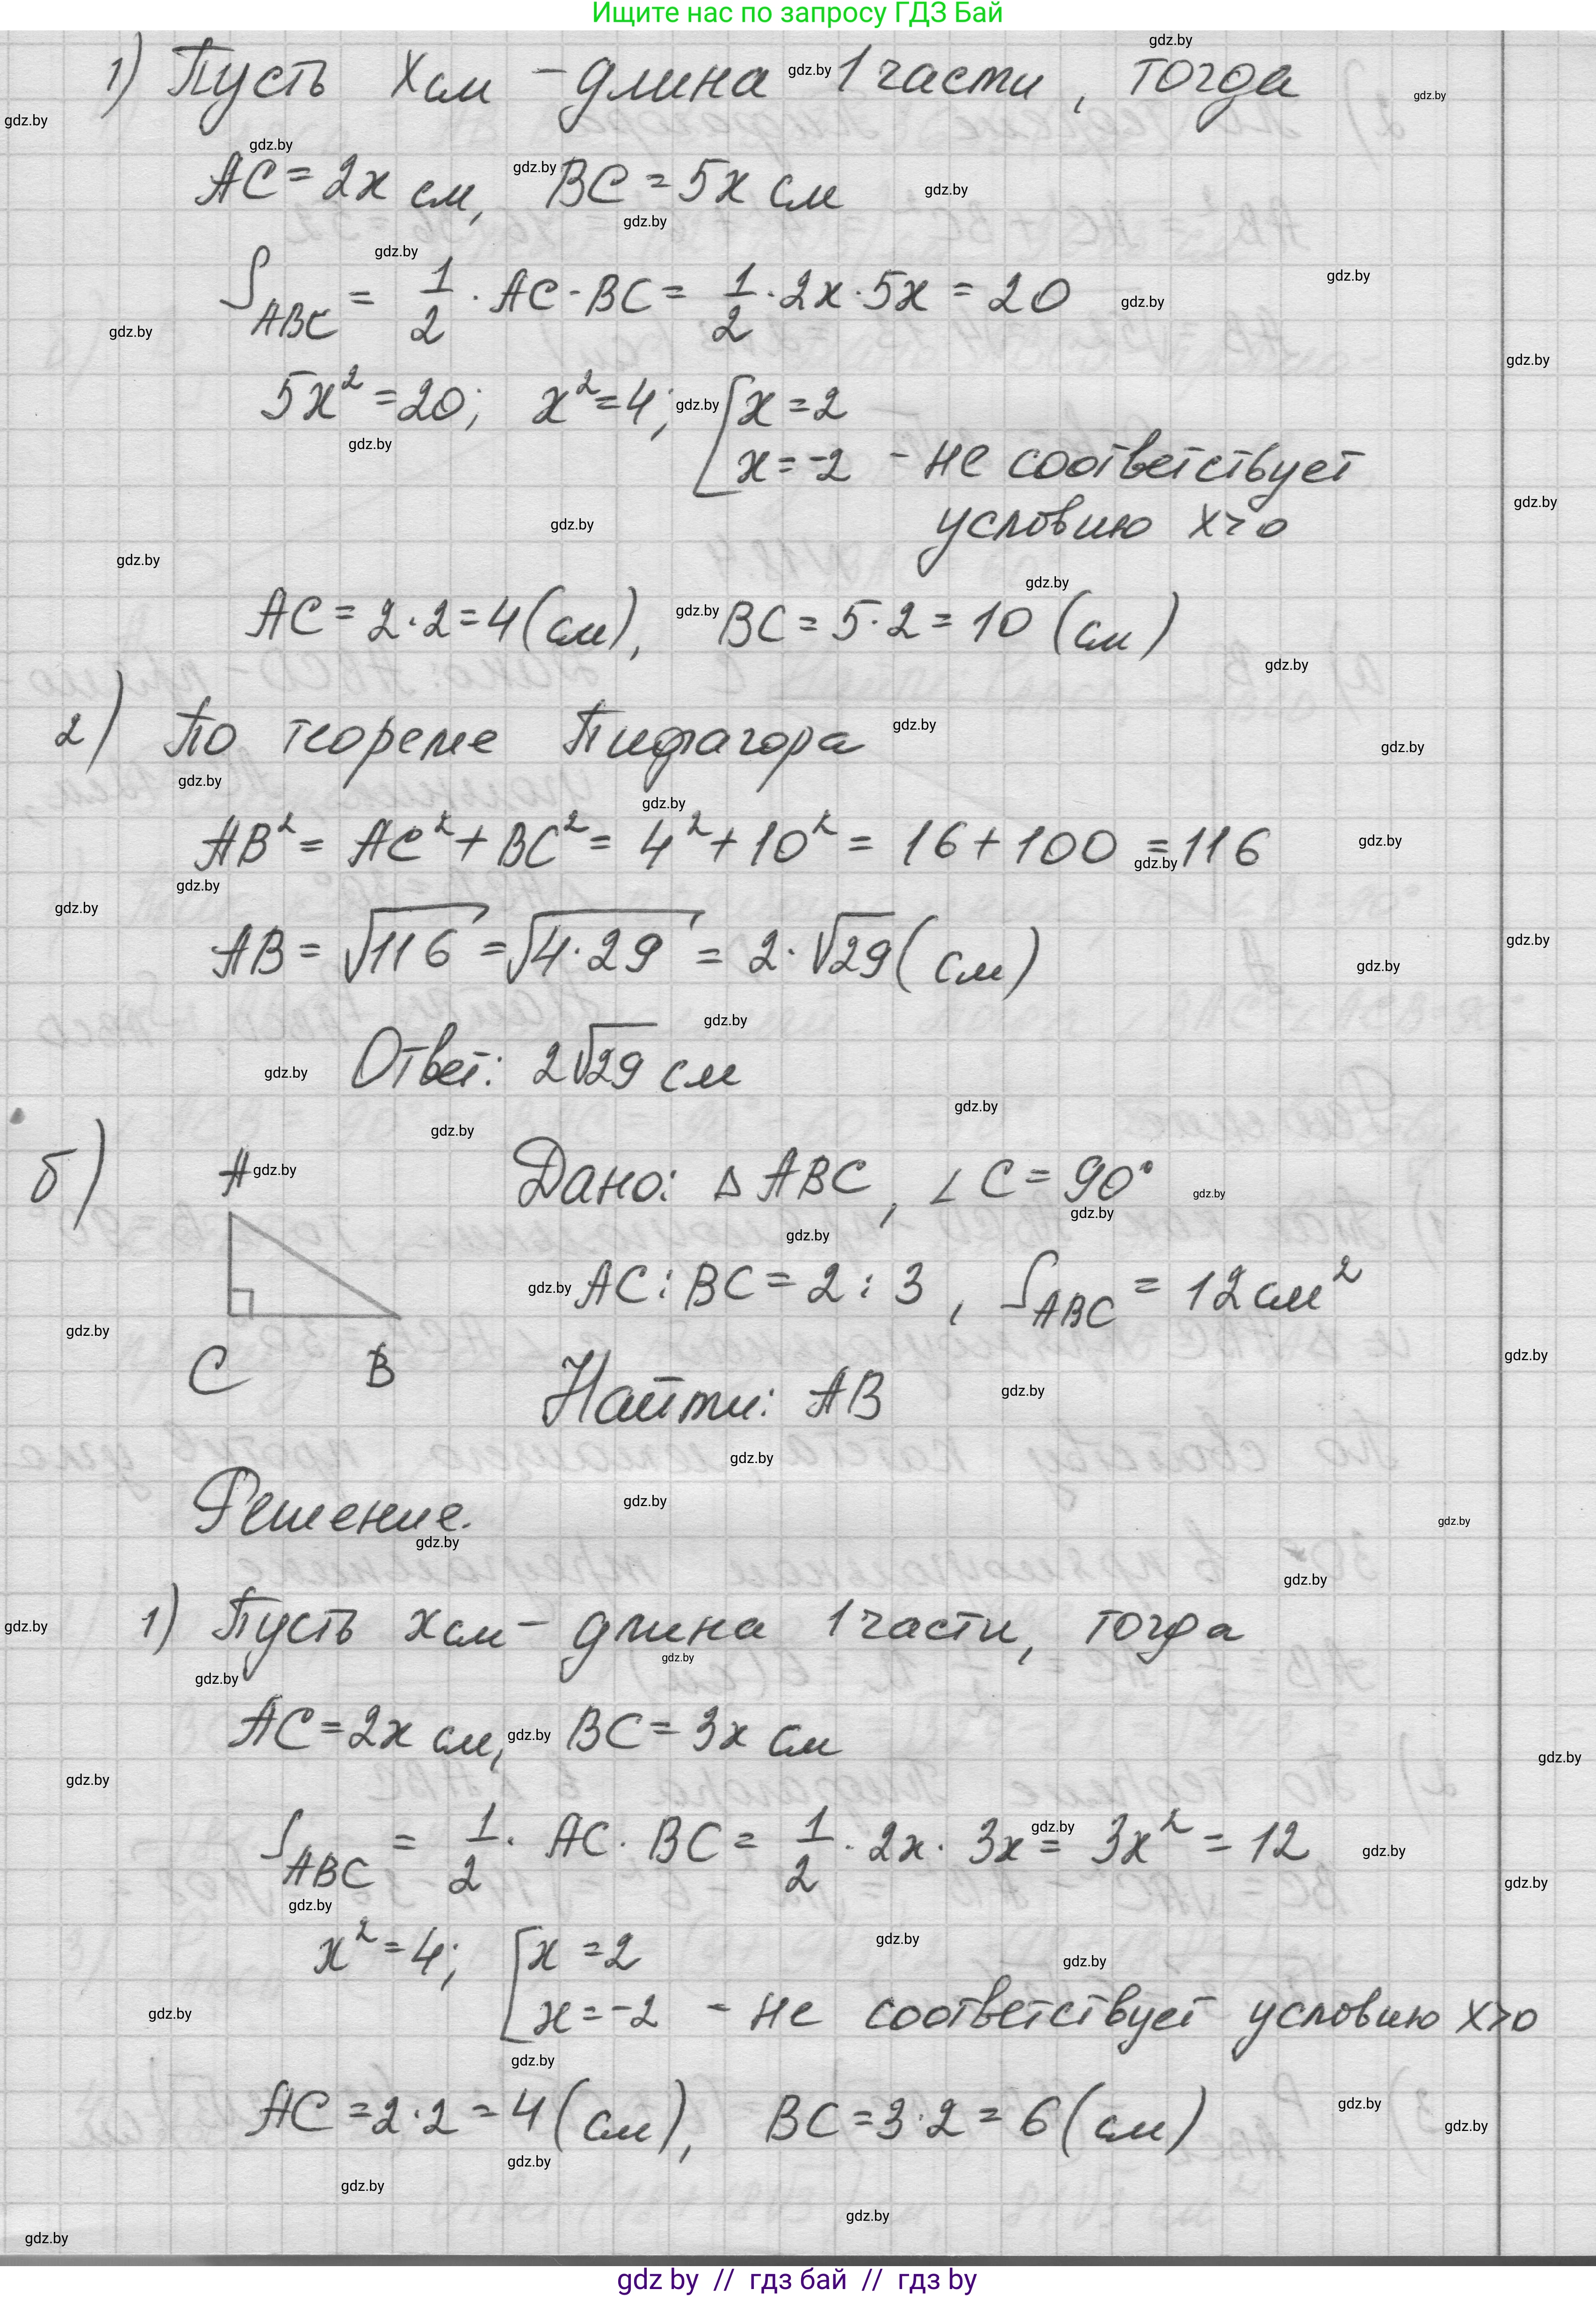 Ищите нас по запросу ГДЗ Бай
1) Пусть x см – длина 1 части, тогда
AC = 2x см, BC = 5x см
S_ABC = 1/2 · AC · BC = 1/2 · 2x · 5x = 20
5x² = 20; x² = 4; [x = 2
x = -2 - не соответствует
условию x > 0
AC = 2 · 2 = 4 (см), BC = 5 · 2 = 10 (см)
2) По теореме Пифагора
AB² = AC² + BC² = 4² + 10² = 16 + 100 = 116
AB = √116 = √4·29 = 2 · √29 (см)
Ответ: 2√29 см
б) A Дано: △ ABC, ∠C = 90°
AC : BC = 2 : 3, S_ABC = 12 см²
C B Найти: AB
Решение.
1) Пусть x см – длина 1 части, тогда
AC = 2x см, BC = 3x см
S_ABC = 1/2 · AC · BC = 1/2 · 2x · 3x = 3x² = 12
x² = 4; [x = 2
x = -2 - не соответствует условию x > 0
AC = 2 · 2 = 4 (см), BC = 3 · 2 = 6 (см)
gdz by // гдз бай // гдз by